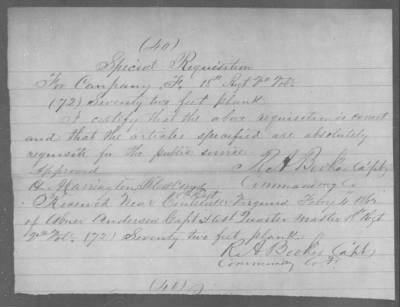 (40)
Special Requisition
For Company F, 18th Regt Va Vols
(72) Seventy two feet plank
I certify that the above requisition is correct
and that the articles specified are absolutely
requisite for the public service
Approved R A Booker Capt
Harrington Commanding Co
Received Near Centreville Virginia Feby 4
of Abner Anderson Capt & asst Quarter Master 18 Regt
Va Vol. (72) Seventy two feet plank
R. A Booker Capt
Commandg Co F.
(41)